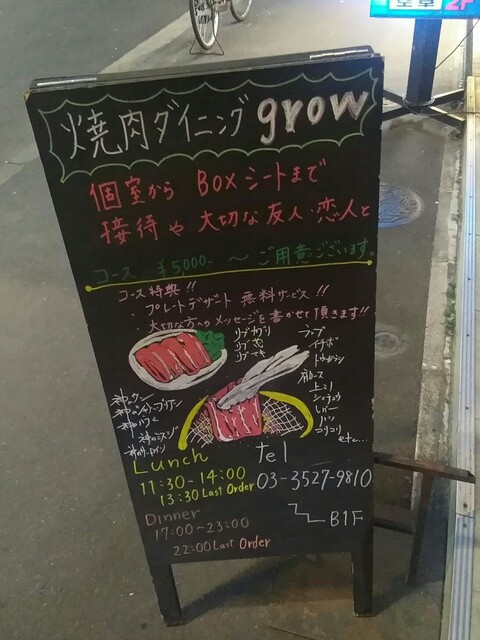 焼肉ダイニング grow
個室から BOXシートまで
接待や大切な友人・恋人と
コース ¥5000- 〜 ご用意ございます
コース特典!!
・プレートデザート 無料サービス!!
・大切な方へのメッセージを書かせて頂きます!!
リブ
リブ
リブ
ランプ
イチボ
トウガラシ
肩ロース
上ミノ
シマチョウ
レバー
ハツ
コリコリ
etc...
神のタン
神のシャトーブリアン
神のハラミ
神のミスジ
神のサーロイン
Lunch
11:30-14:00
13:30 Last Order
tel
03-3527-9810
Dinner
17:00〜23:00
22:00 Last Order
B1F
2F